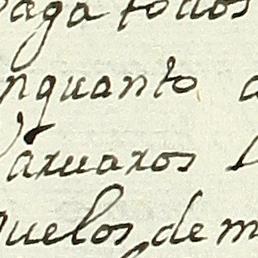 paga todos
nquanto a
Paruaros
quelos de m